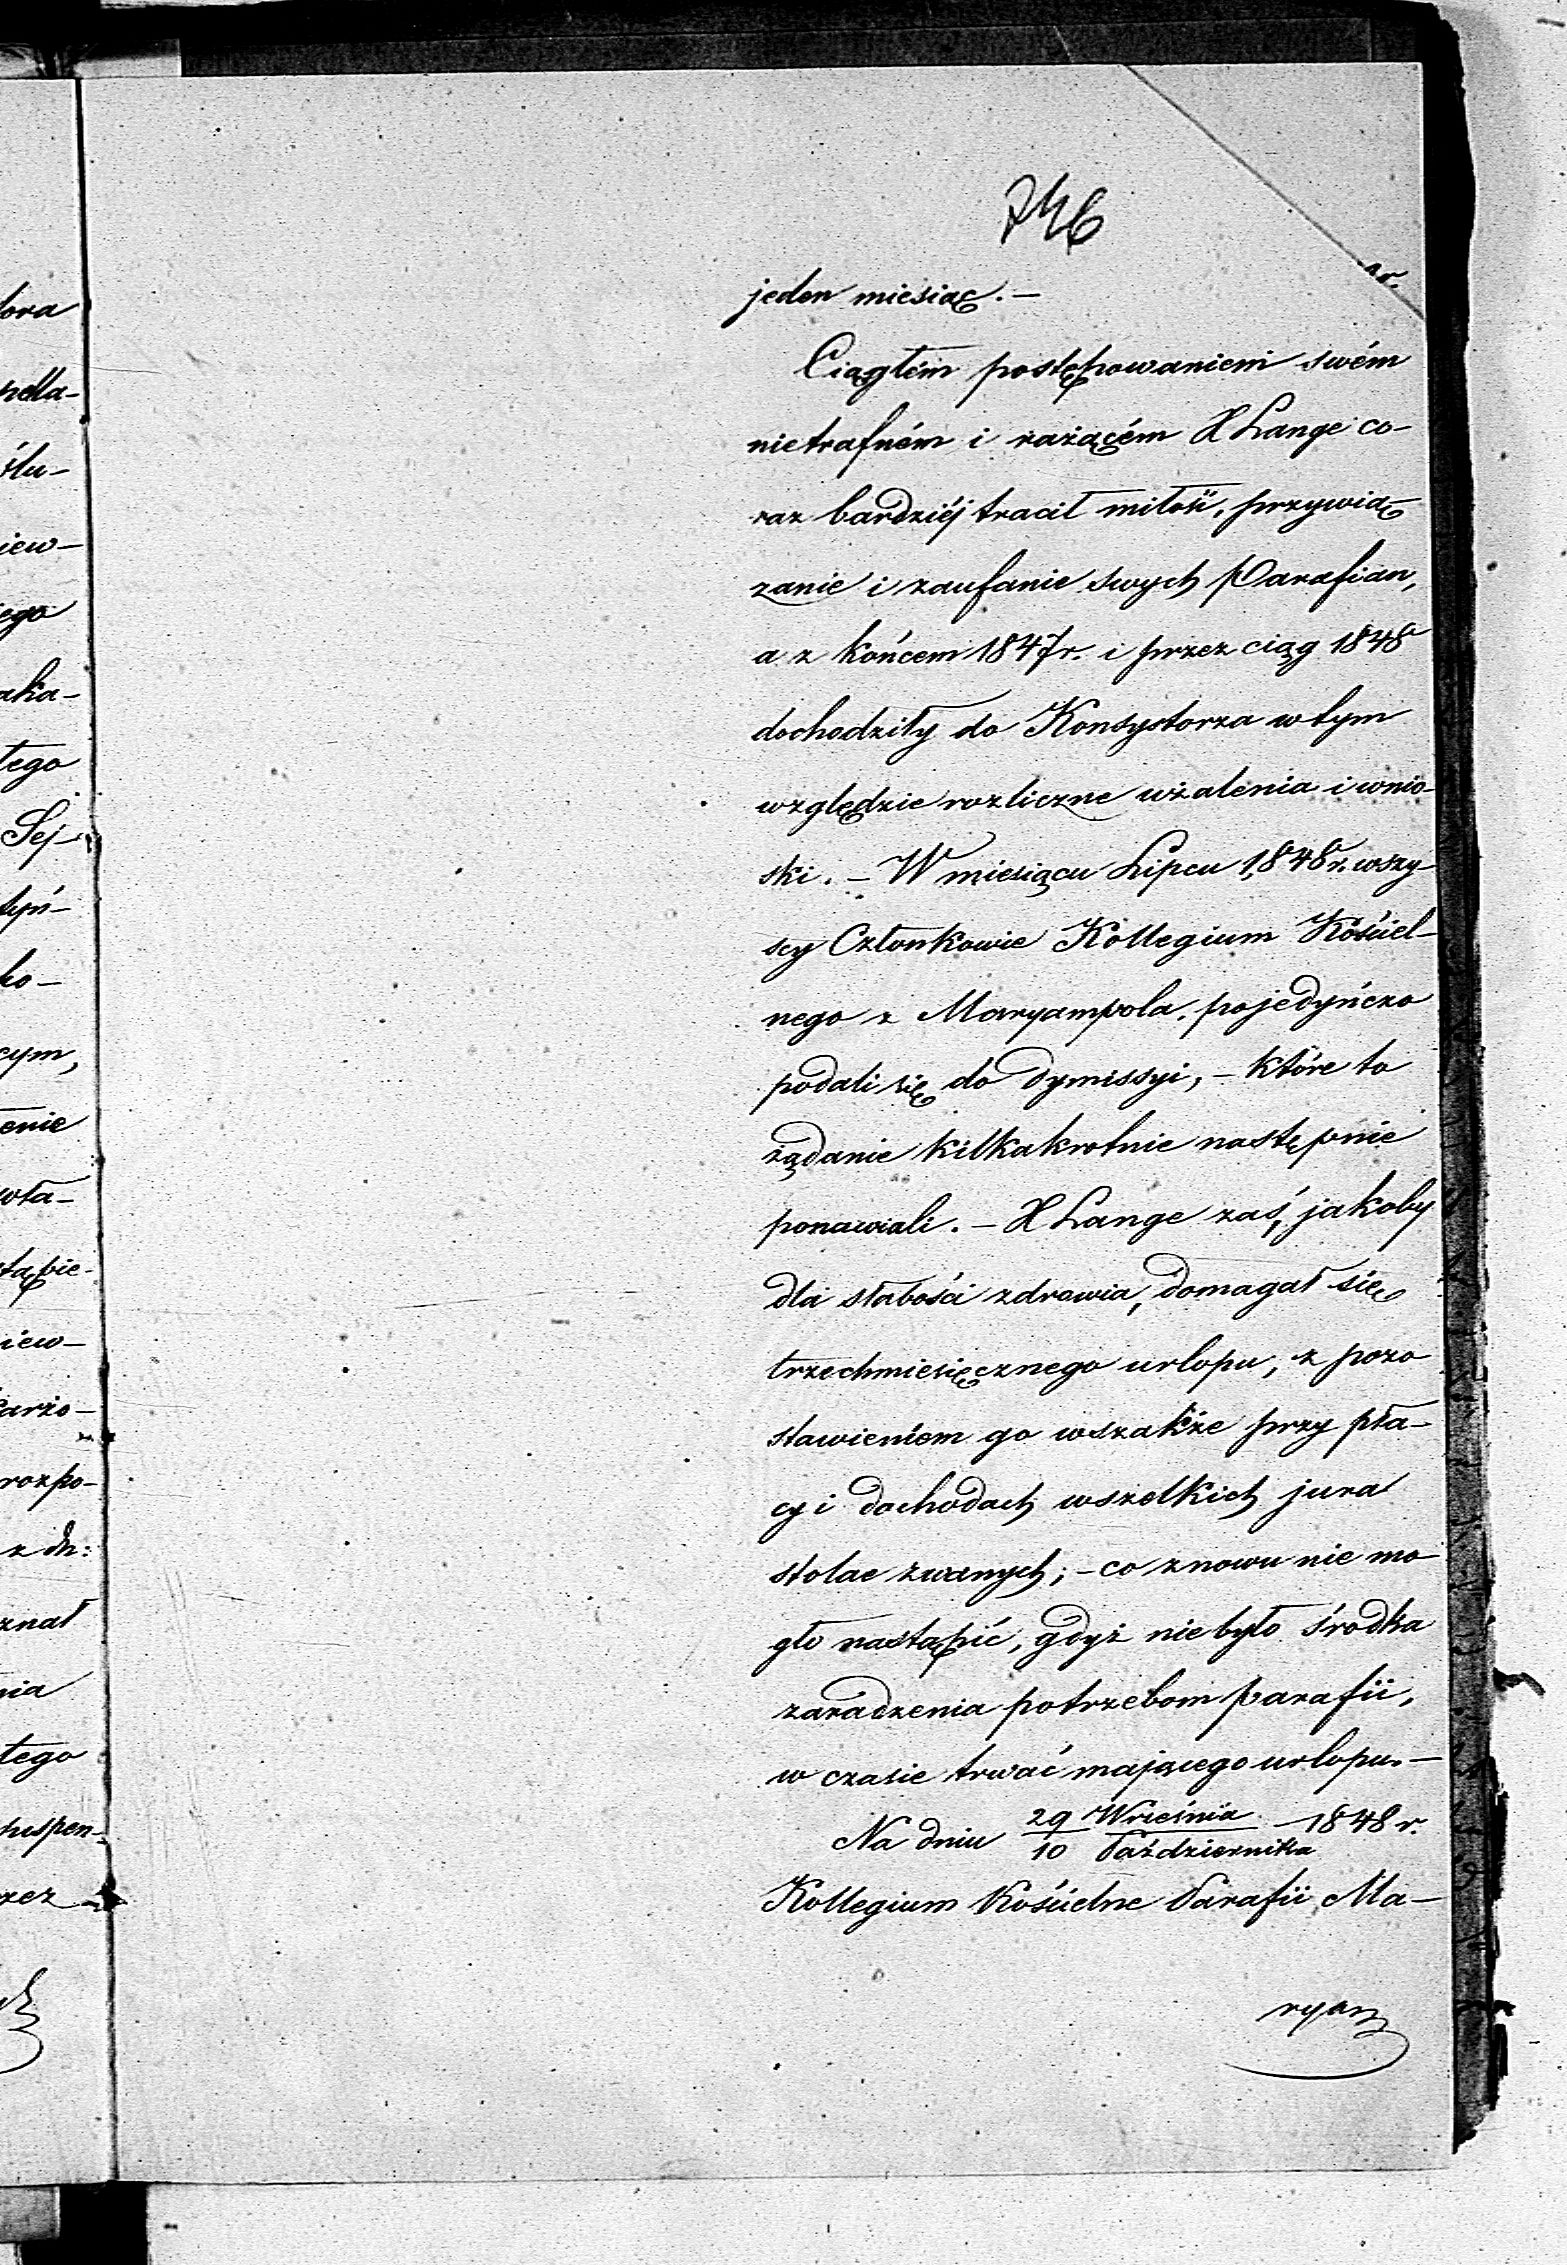 746
jeden miesiąc. —
Ciągłém postępowaniem swém
nietrafném i rażącém X Lange co-
raz bardziéj tracił miłość, przywią-
zanie i zaufanie swych Parafian,
a z końcem 1847 r. i przez ciąg 1848
dochodziły do Konsystorza w tym
względzie rozliczne użalenia i wnio-
ski. — W miesiącu Lipcu 1848 r. wszy-
scy Członkowie Kollegium Kościel-
nego z Maryampola, pojedyńczo
podali się do dymissyi, — które to
żądanie kilkakrotnie następnie
ponawiali. — X Lange zaś, jakoby
dla słabości zdrowia, domagał się
trzechmiesięcznego urlopu, z pozo
stawieniem go wszakże przy pła-
cy i dochodach wszelkich jura
stolae zwanych; — co znowu nie mo-
gło nastąpić, gdyż nie było środka
zaradzenia potrzebom parafii,
w czasie trwać mającego urlopu. —
Na dniu 29 Września / 10 Października 1848 r.
Kollegium Kościelne Parafii Ma-
ryam
dora
pella-
ślu-
iew-
iego
aka-
tego
Sej-
tyń-
ko-
cym,
enie
wła-
stąpie-
iew-
karżo-
rozpo-
z dn:
znał
nia
tego
suspen-
rzez